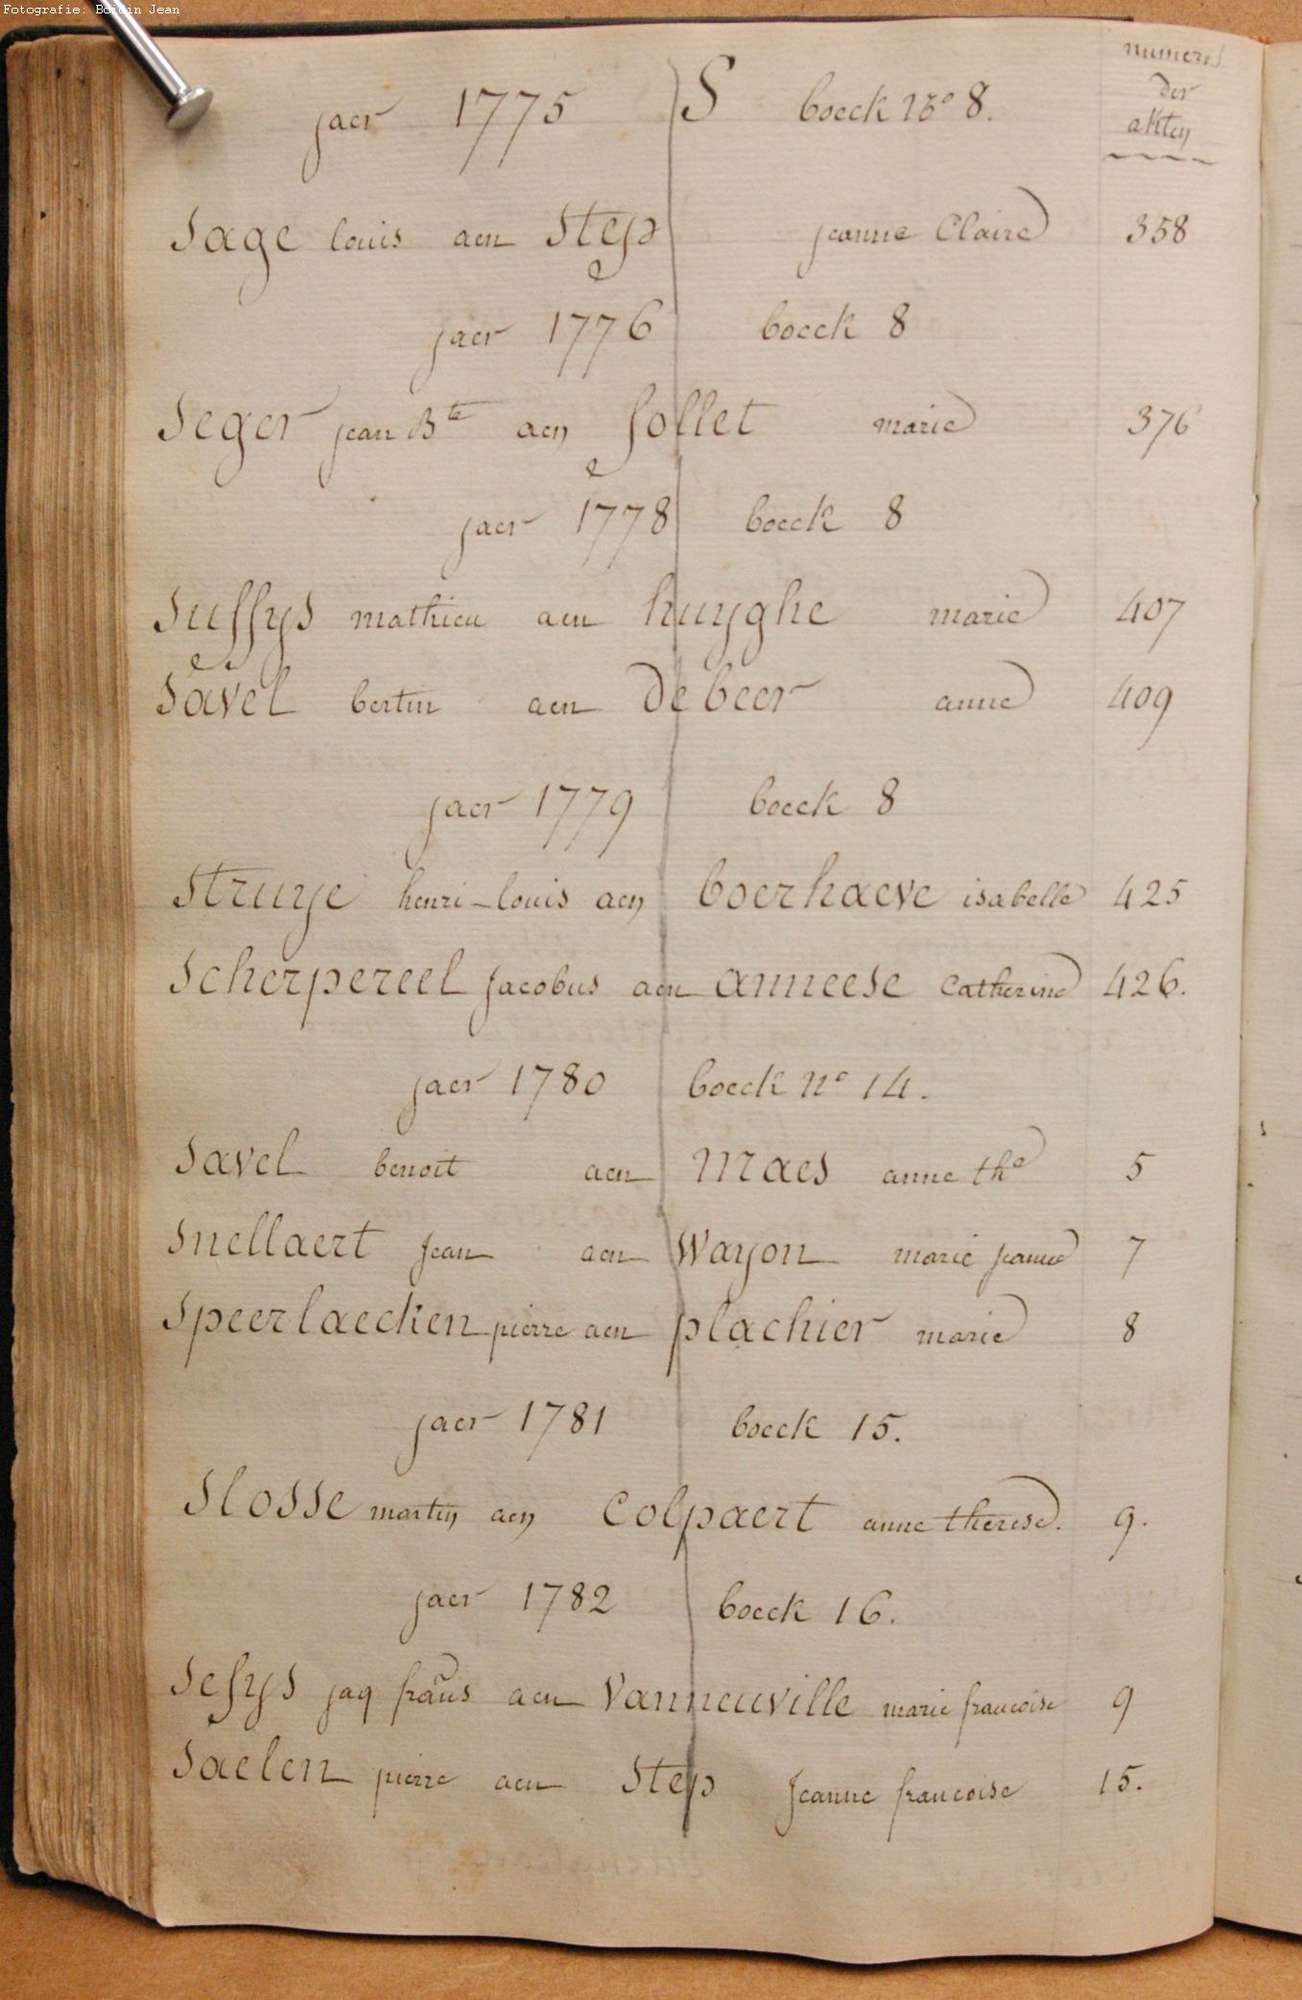 Fotografie: Boidin Jean
numero
der
akten
jaer 1775 S boeck No 8.
Sage louis aen Step jeanne Claire 358
jaer 1776 boeck 8
Seger jean Bte aen follet marie 376
jaer 1778 boeck 8
Suffys mathieu aen huyghe marie 407
Savel bertin aen De beer anne 409
jaer 1779 boeck 8
Struye henri-louis aen boerhaeve isabelle 425
Scherpereel Jacobus aen anneese Catherine 426.
jaer 1780 boeck no 14.
Savel benoit aen Maes anne the 5
Snellaert Jean aen Wayon marie jeanne 7
Speerlaecken pierre aen plachier marie 8
jaer 1781 boeck 15.
Slosse martin aen Colpaert anne therese. 9.
jaer 1782 boeck 16.
Sefys jaq frans aen Vanneuville marie francoise 9
Saelen pierre aen Step Jeanne francoise 15.